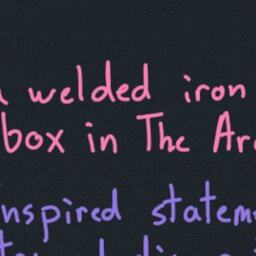 welded iron
box in The Ar
nspired statem